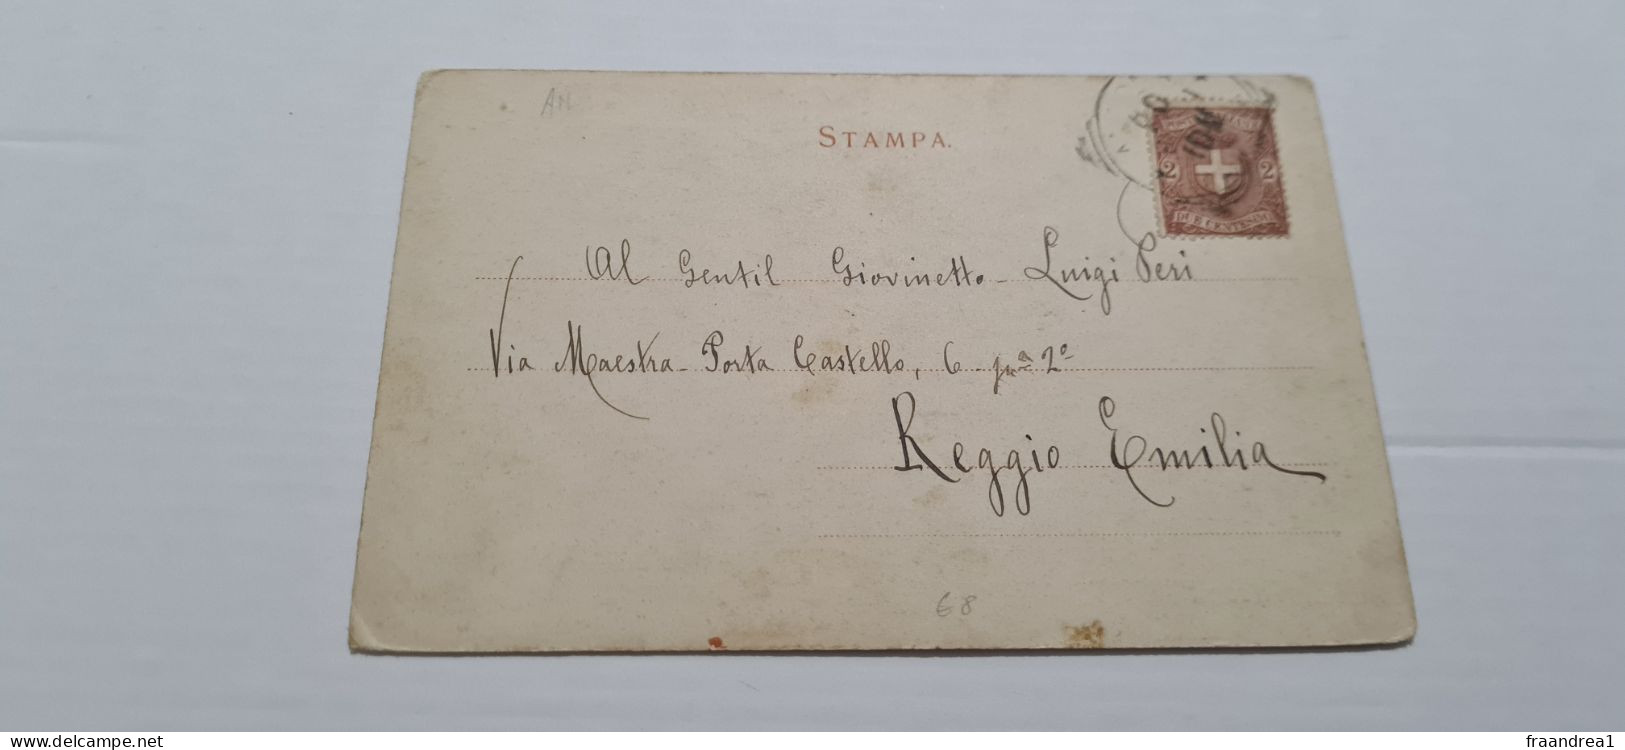 AN
STAMPA.
2 2
DUE CENTESIMI
Al Gentil Giovinetto Luigi Peri
Via Maestra Porta Castello, 6 pna 2º
Reggio Emilia
68
www.delcampe.net
fraandrea1